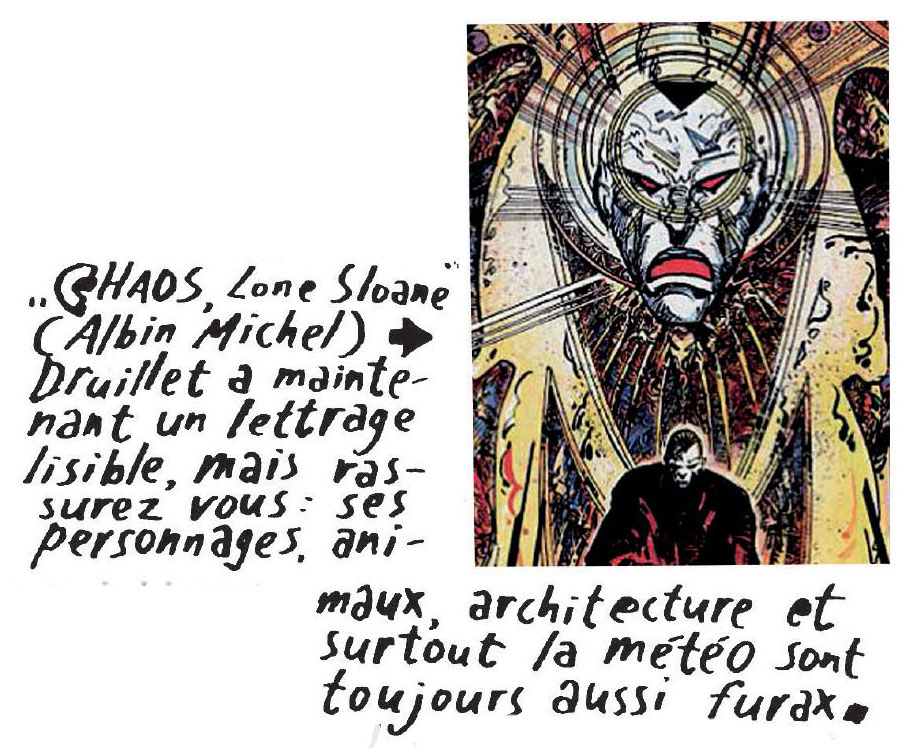 "CHAOS, Lone Sloane"
(Albin Michel) ➡
Druillet a mainte-
nant un lettrage
lisible, mais ras-
surez vous : ses
personnages, ani-
maux, architecture et
surtout la météo sont
toujours aussi furax.